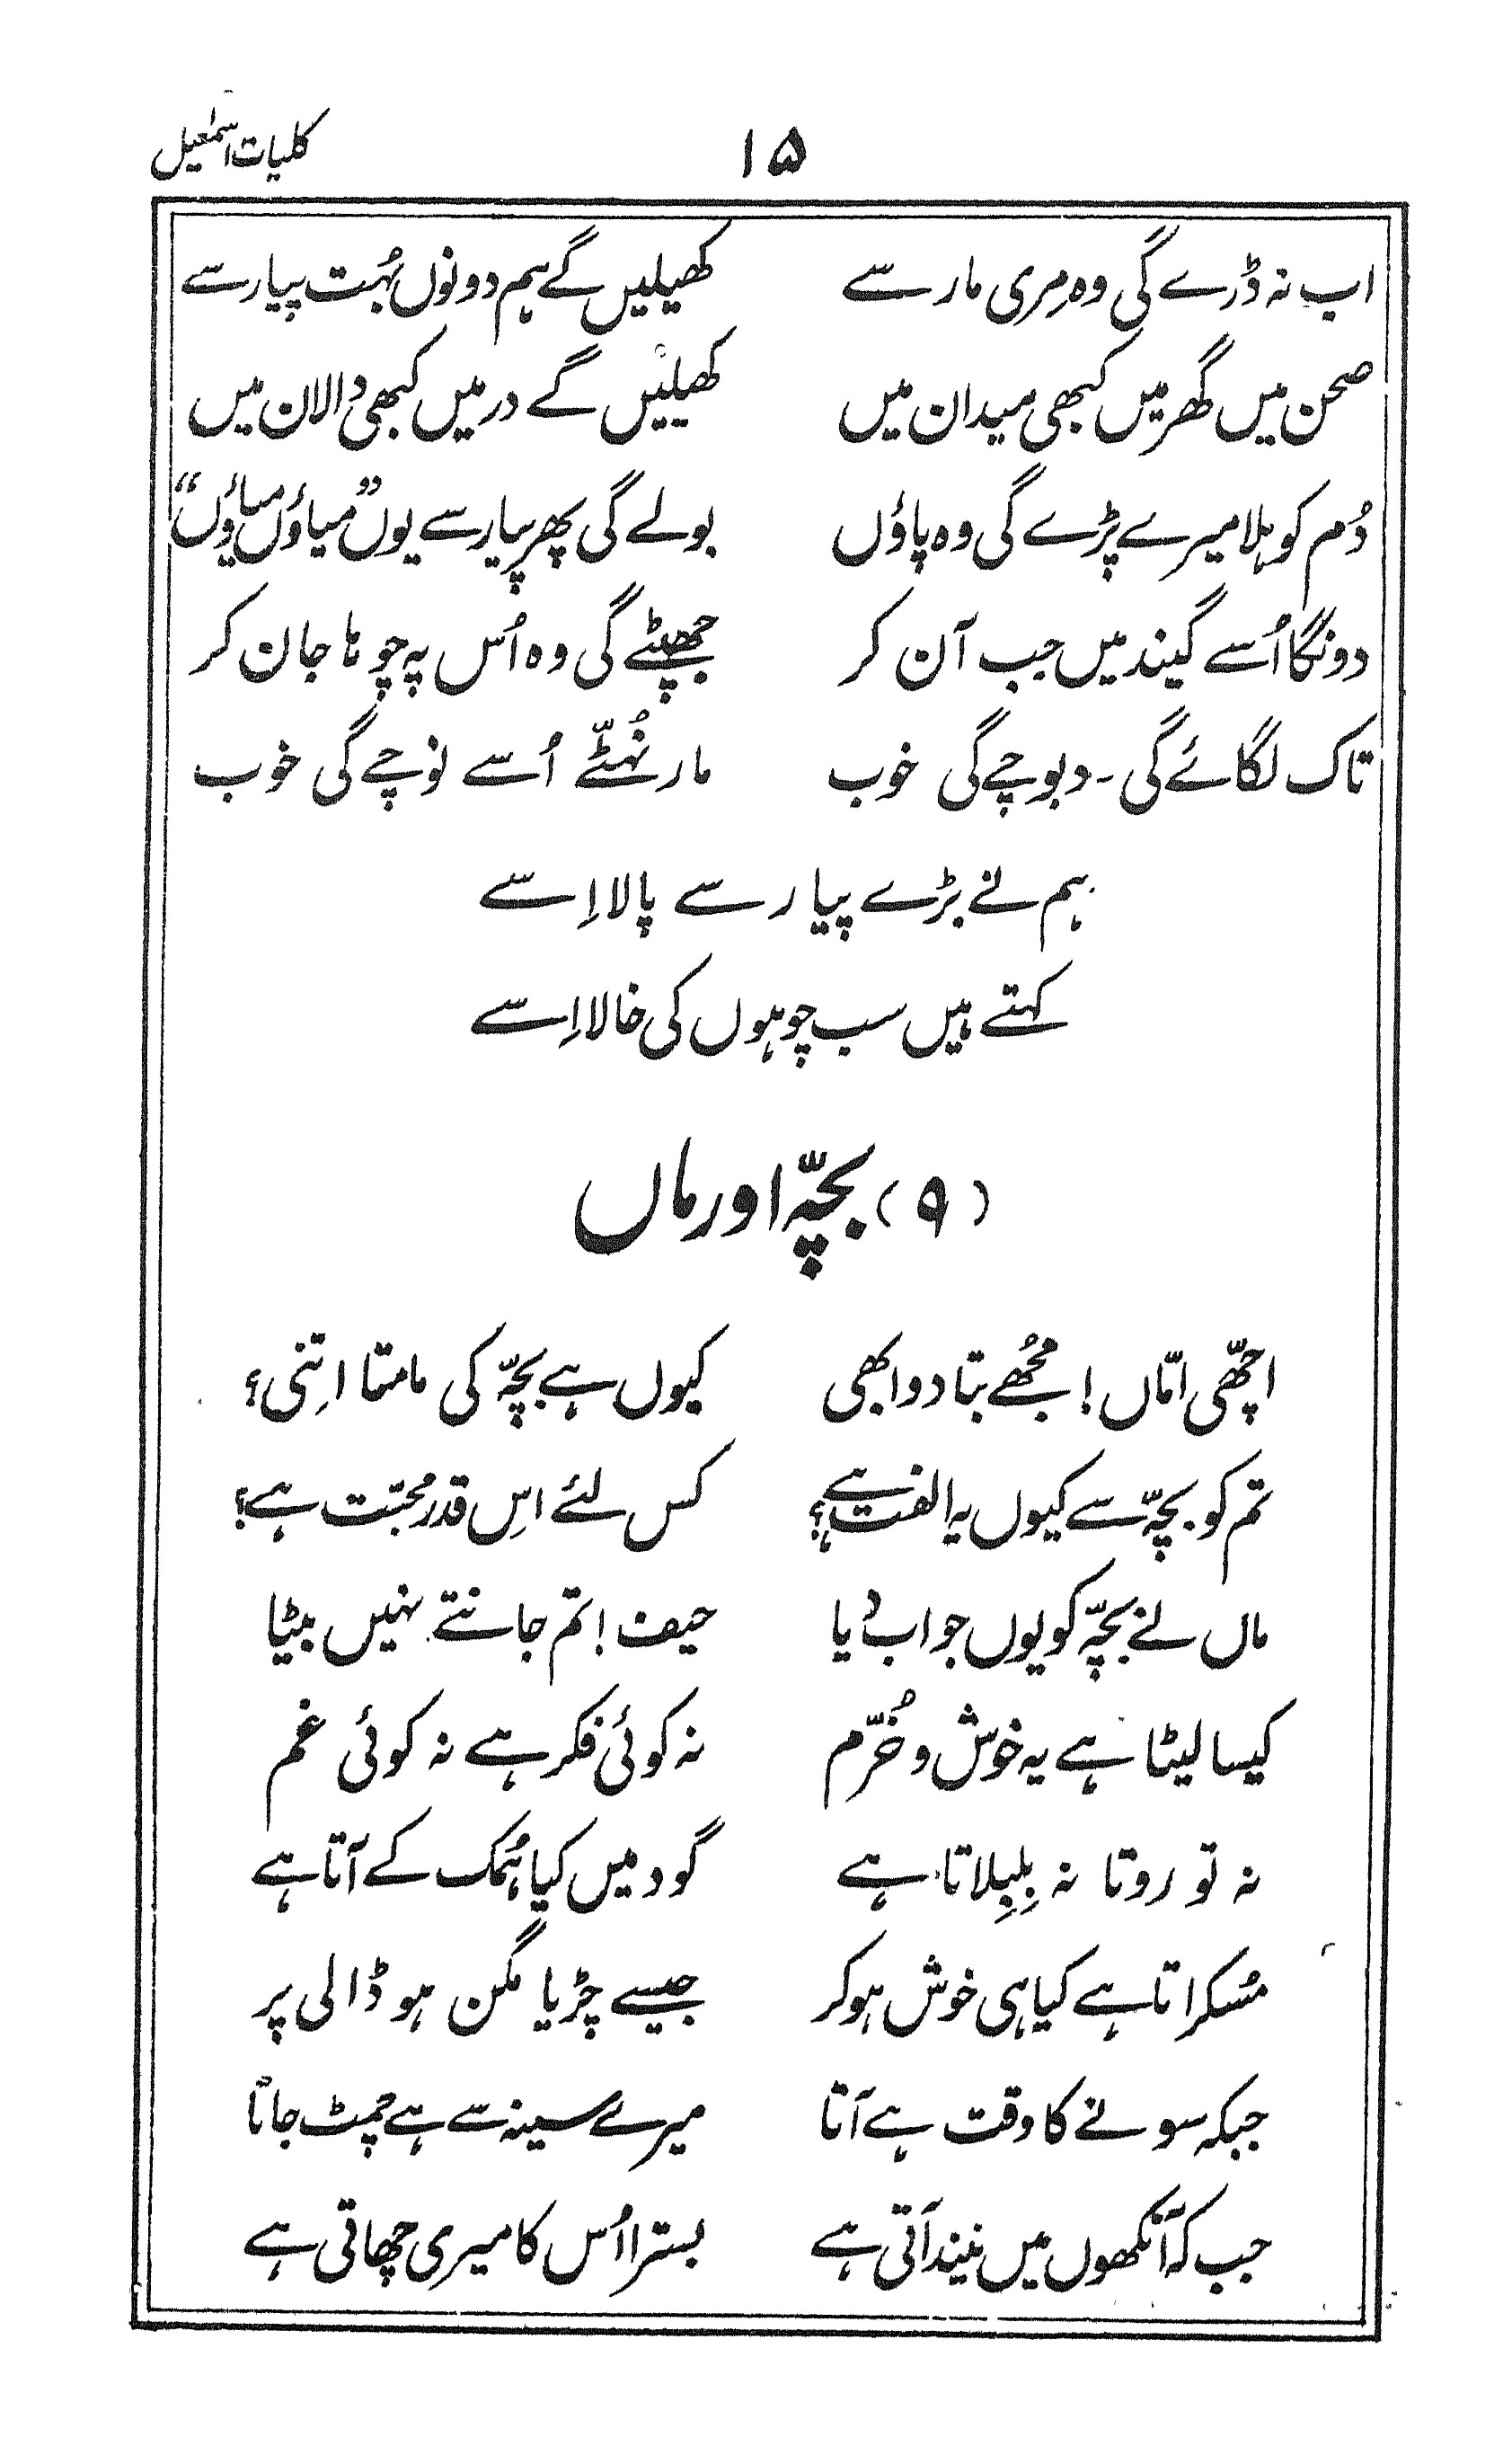 کلیات اسمٰعیل ۱۵
اب نہ ڈرے گی وہ مِری مار سے کھیلیں گے ہم دونوں بہُت پیار سے
صحن میں گھر میں کبھی میدان میں کھیلیں گے در میں کبھی دالان میں
دُم کو ہلا میرے پڑے گی وہ پاؤں بولے گی پھر پیار سے یوں ”میاؤں میاؤں“
دونگا اُسے گیند میں جب آن کر جھپٹے گی وہ اُس پہ چوہا جان کر
تاک لگائے گی - دبوچے گی خوب مار نُہٹّے اُسے نوچے گی خوب
ہم نے بڑے پیار سے پالا اِسے
کہتے ہیں سب چوہوں کی خالا اِسے
(۹) بچّہ اور ماں
اچھّی امّاں! مجُھے بتا دو ابھی کیوں ہے بچّہ کی مامتا اِتنی؟
تم کو بچّہ سے کیوں یہ الفت ہے؟ کس لئے اِس قدر محبّت ہے؟
ماں نے بچّہ کو یوں جواب دیا حیف! تم جانتے نہیں بیٹا
کیسا لیٹا ہے یہ خوش و خُرّم نہ کوئی فکر ہے نہ کوئی غم
نہ تو روتا نہ بِلبِلاتا ہے گود میں کیا ہُمک کے آتا ہے
مُسکراتا ہے کیا ہی خوش ہو کر جیسے چڑیا مگن ہو ڈالی پر
جبکہ سونے کا وقت ہے آتا میرے سینہ سے ہے چمٹ جاتا
جب کہ آنکھوں میں نیند آتی ہے بسترا اُس کا میری چھاتی ہے